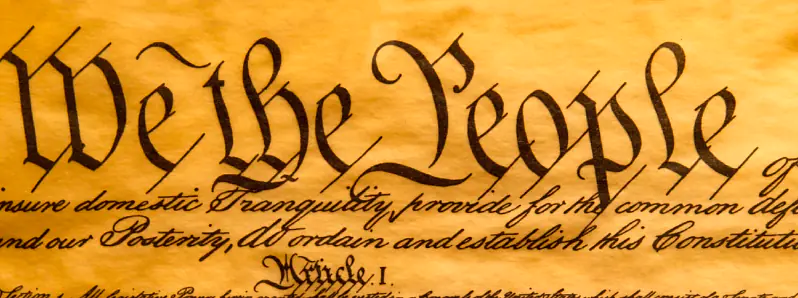 We the People of
insure domestic Tranquility, provide for the common defe
and our Posterity, do ordain and establish this Constitutio
Article. I.